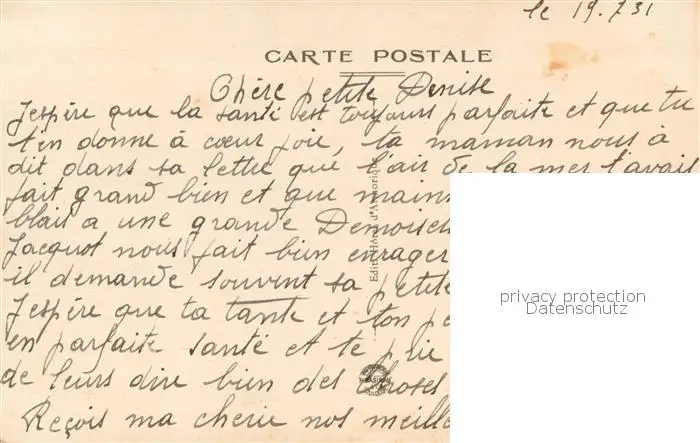 le 19.7.31
CARTE POSTALE
Chère petite Denise
J'espère que la santé est toujours parfaite et que tu
t'en donne à cœur joie, ta maman nous à
dit dans sa lettre que l'air de la mer t'avait
fait grand bien et que
blait a une grande
Jacquot nous fait bien enrager
il demande souvent sa petite
J'espère que ta tante et ton
en parfaite santé et te prie
de leurs dire bien des choses
Reçois ma cherie nos
Edit. Hôtel d'Armorique
privacy protection
Datenschutz